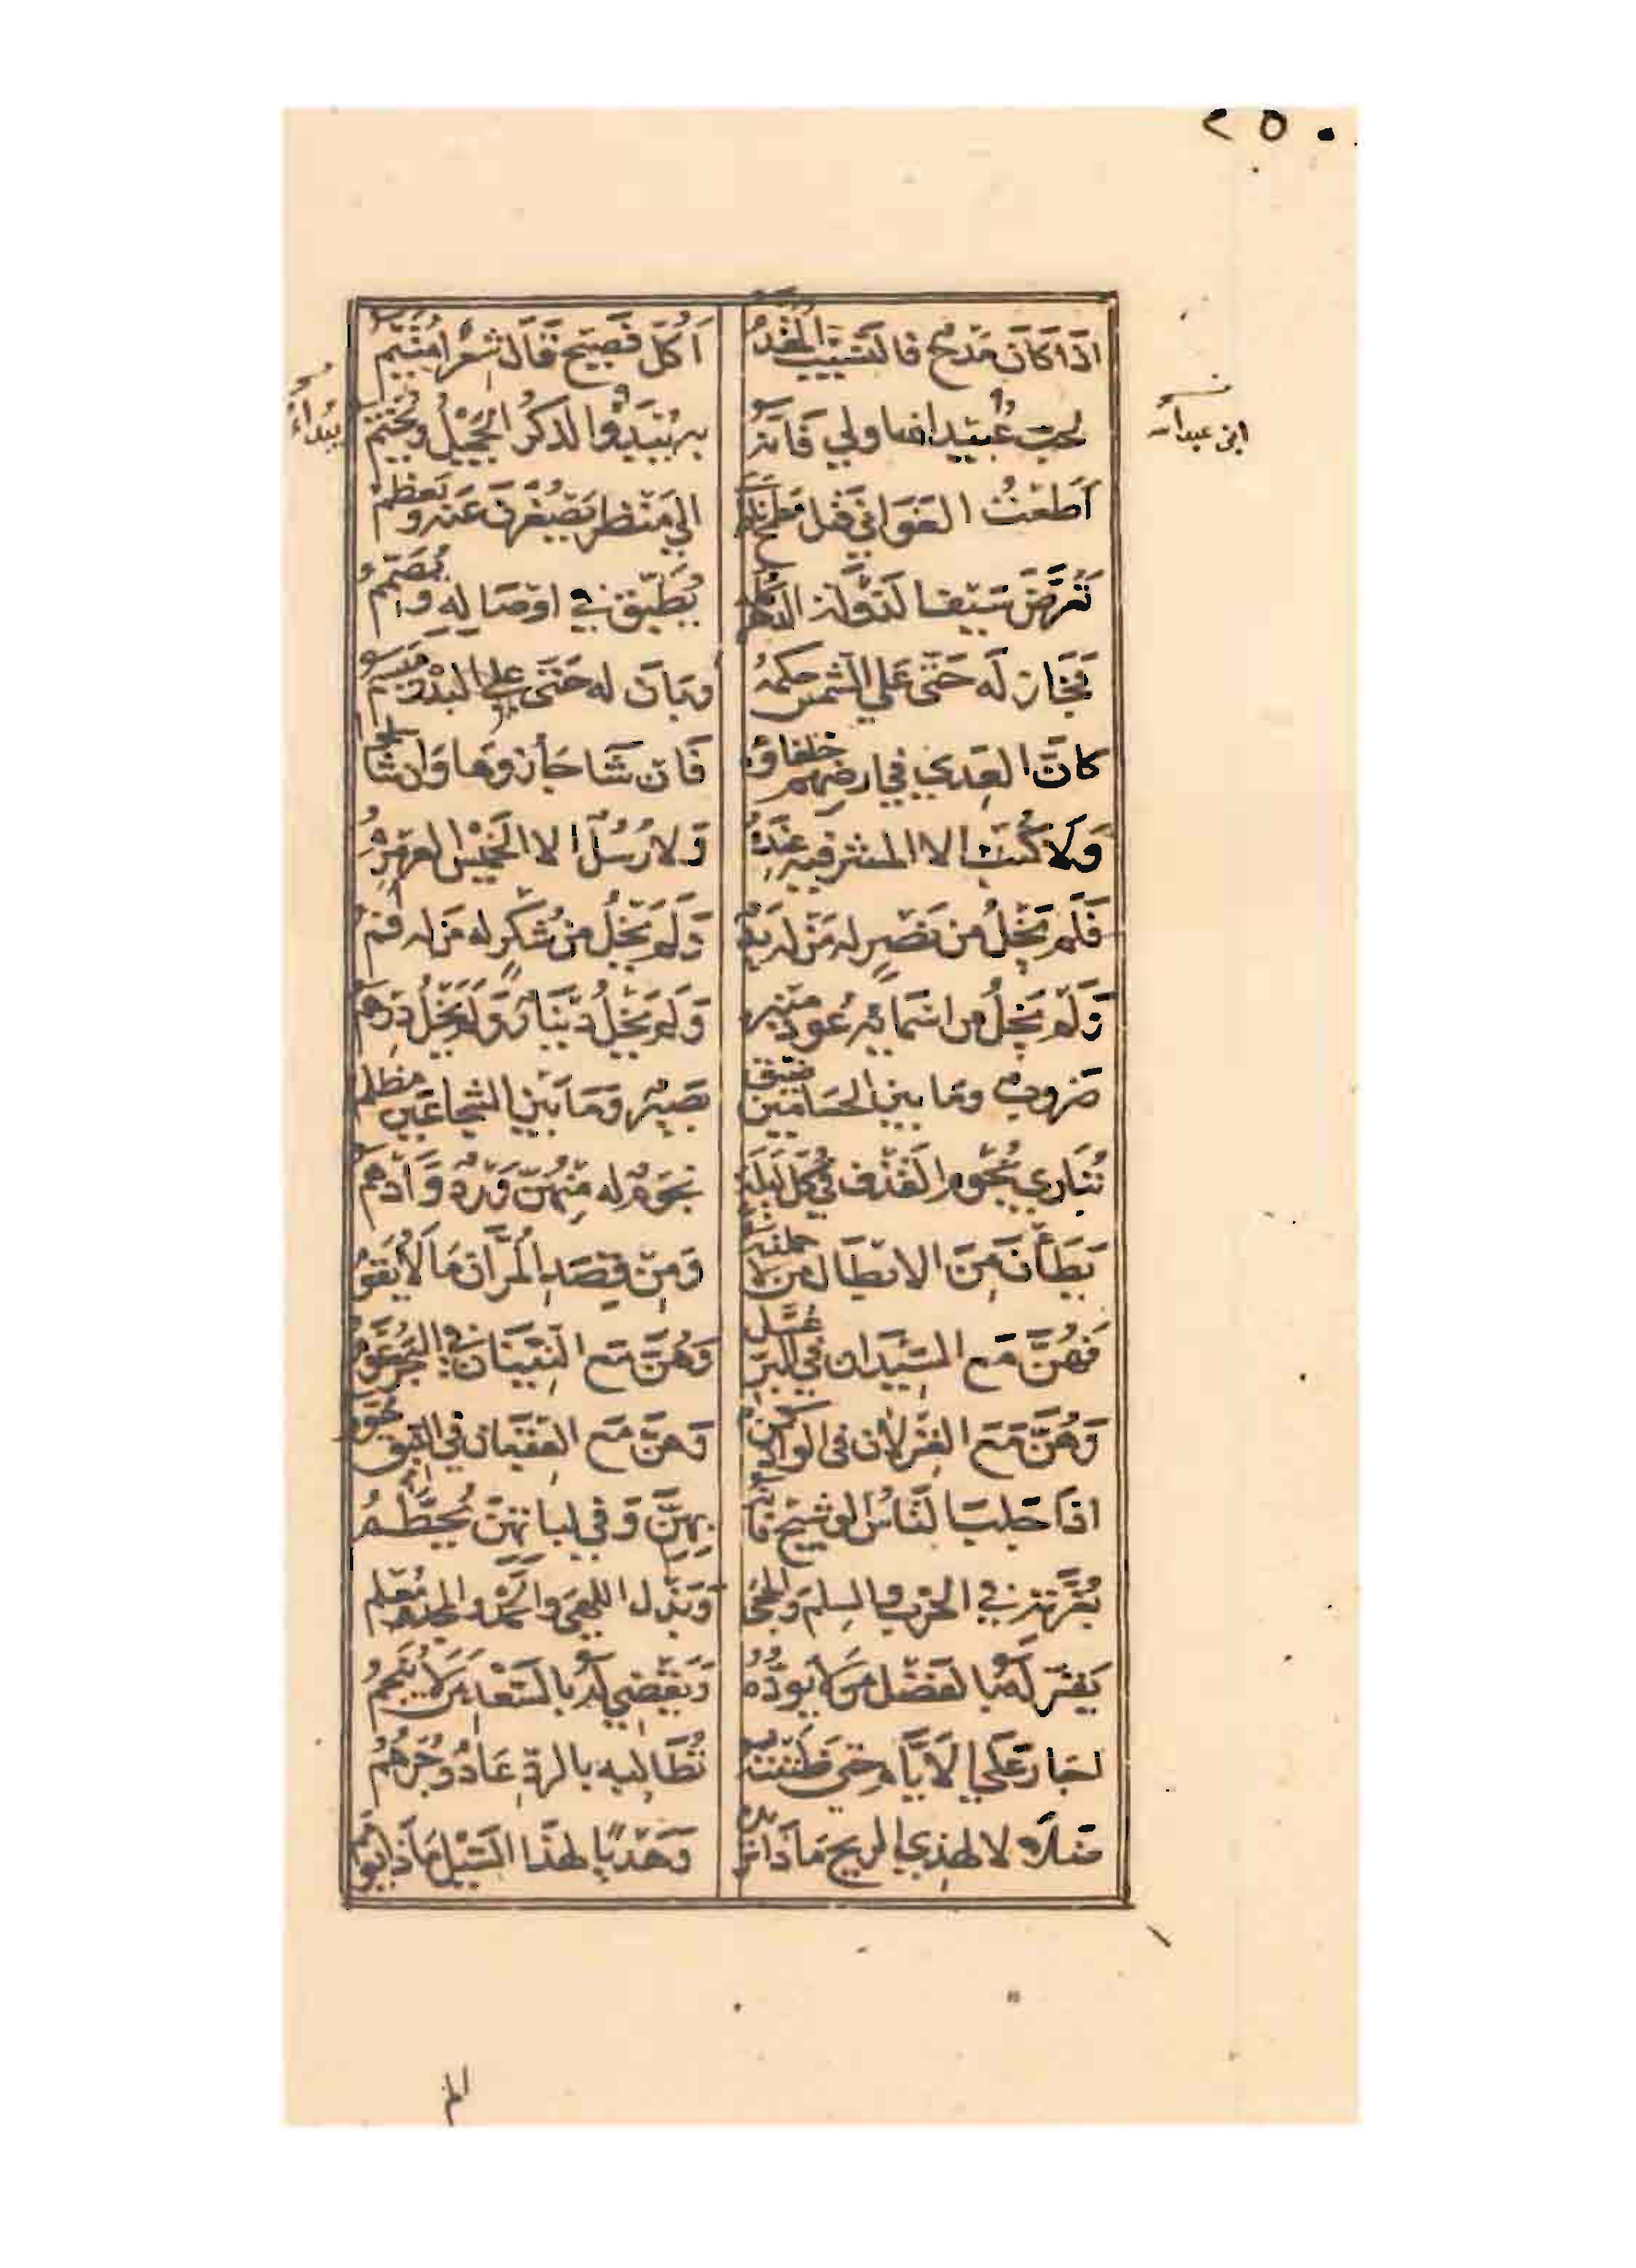 ٢٥٠
اذَا كَانَ مَدْحٌ فَالنَّسِيبُ المُقَدَّمُ اَكُلُّ فَصِيحٍ قَالَ شِعْرًا مُتَيَّمُ
لحبّ عُبَيْد الله اولي فَاِنَّهُ بِهِ يُبْتَدَؤُا الذِكرُ الجَمِيْلُ وَيُخْتَمُ
ابن عبدالله
يبداءُ
اَطَعْتُ الغَوَانِي قبل مَطمح ناظري الي مَنْظَرٍ يَصْغُرْنَ عَنه ويَعظمُ
تَعَرَّضَ سَيْفُ الدَّوْلَةِ الدَّهْرَ كله يُطَبِّقُ في اوْصَالِهِ وَيُصَمِّمُ
فَجَازَ لَه حَتّى عَلي الشّمسِ حكمُهُ وبَانَ له حَتّى علي البَدْرِ مَيْسَمُ
كانَّ العِدي في ارضِهِم خلفاؤه فَاِن شَا حَازُوهَا وَان شَا سلموا
وَلَا كُتُبٌ الا المشرفيه عِنْدَهُ وَلا رُسُلٌ الا الخَمِيْسُ العَرَمْرَمُ
فَلَم يَخْلُ من نَصْرٍ له مَنْ لَه يَدٌ وَلَم يَخْلُ من شُكْرٍ له مَن له فَمُ
وَلَم يَخْلُ من اسْمَائِهِ عُودُ مِنْبَرٍ وَلَم يَخْلُ دِيْنَارٌ وَلَم يَخْلُ دِرْهَمُ
ضَروبٌ وَمَا بين الحُسَامَيْنِ ضَيّق بَصِيْرٌ وَمَا بَيْنَ الشُجَاعَيْنِ مُظلم
تُبَارِي نُجُوْمَ القَذْفِ فِي كُلِّ لَيْلَةٍ نجُومٌ له مِنْهُنَّ وَرْدٌ وَاَدْهَمُ
يَطَأْنَ مِنَ الابْطَالِ مَن لا حملنَهُ وَمِنْ قِصَدِ المُرَّانِ مَا لَا يُقَوَّمُ
فَهُنَّ مَع السّيْدَانِ فِي البَرِّ عُسَّلٌ وَهُنَّ مَع النِّيْنَانِ في البَحرِ عُوَّمُ
وَهُنَّ مَع الغِزلَانِ فى الوادِ كُمَّنٌ وَهنَّ مَع العِقْبَانِ فِي النِيقِ حُوَّمُ
اذَا جَلبَ النَّاسُ الوَشِيْجَ فَاِنَّه بِهِنَّ وَفِي لباتهِنَّ يُحَطَّمُ
بِغُرَّتِهِ فِي الحَرْبِ والسِلمِ وَالحِجَى وَبَذْلِ اللهى وَالحَمْدِ وَالمجدِ مُعْلَم
يُقِرُّ لَهُ بِالفَضْلِ مَن لَا يَوَدُّهُ وَيَقْضِي لَهُ بِالسَّعْدِ مَن لَا يُنَجِّمُ
اجَارَ عَلَي الاَيَّامِ حتى ظَنَنْتُهُ تُطَالِبُهُ بالردّ عَادٌ وَجُرْهُمُ
ضلالا لِهذِي الريحِ مَاذَا وَهَدْيًا لِهذَا السَّيْلِ مَاذَا يؤمم
الم